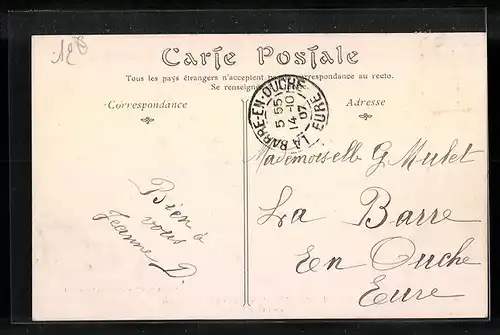 128
Carte Postale
Tous les pays étrangers n'acceptent pas la correspondance au recto.
Se renseigner
Correspondance
Adresse
LA BARRE-EN-OUCHE
5 55
14 -10
07
EURE
Mademoiselle G. Mulet
La Barre
En Ouche
Eure
Bien à
vous
Jeanne D.